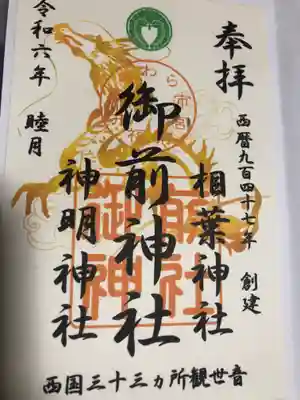 奉拝
西暦九百四十七年 創建
相葉神社
御前神社
神明神社
令和六年 睦月
西国三十三ヵ所観世音
御前神社